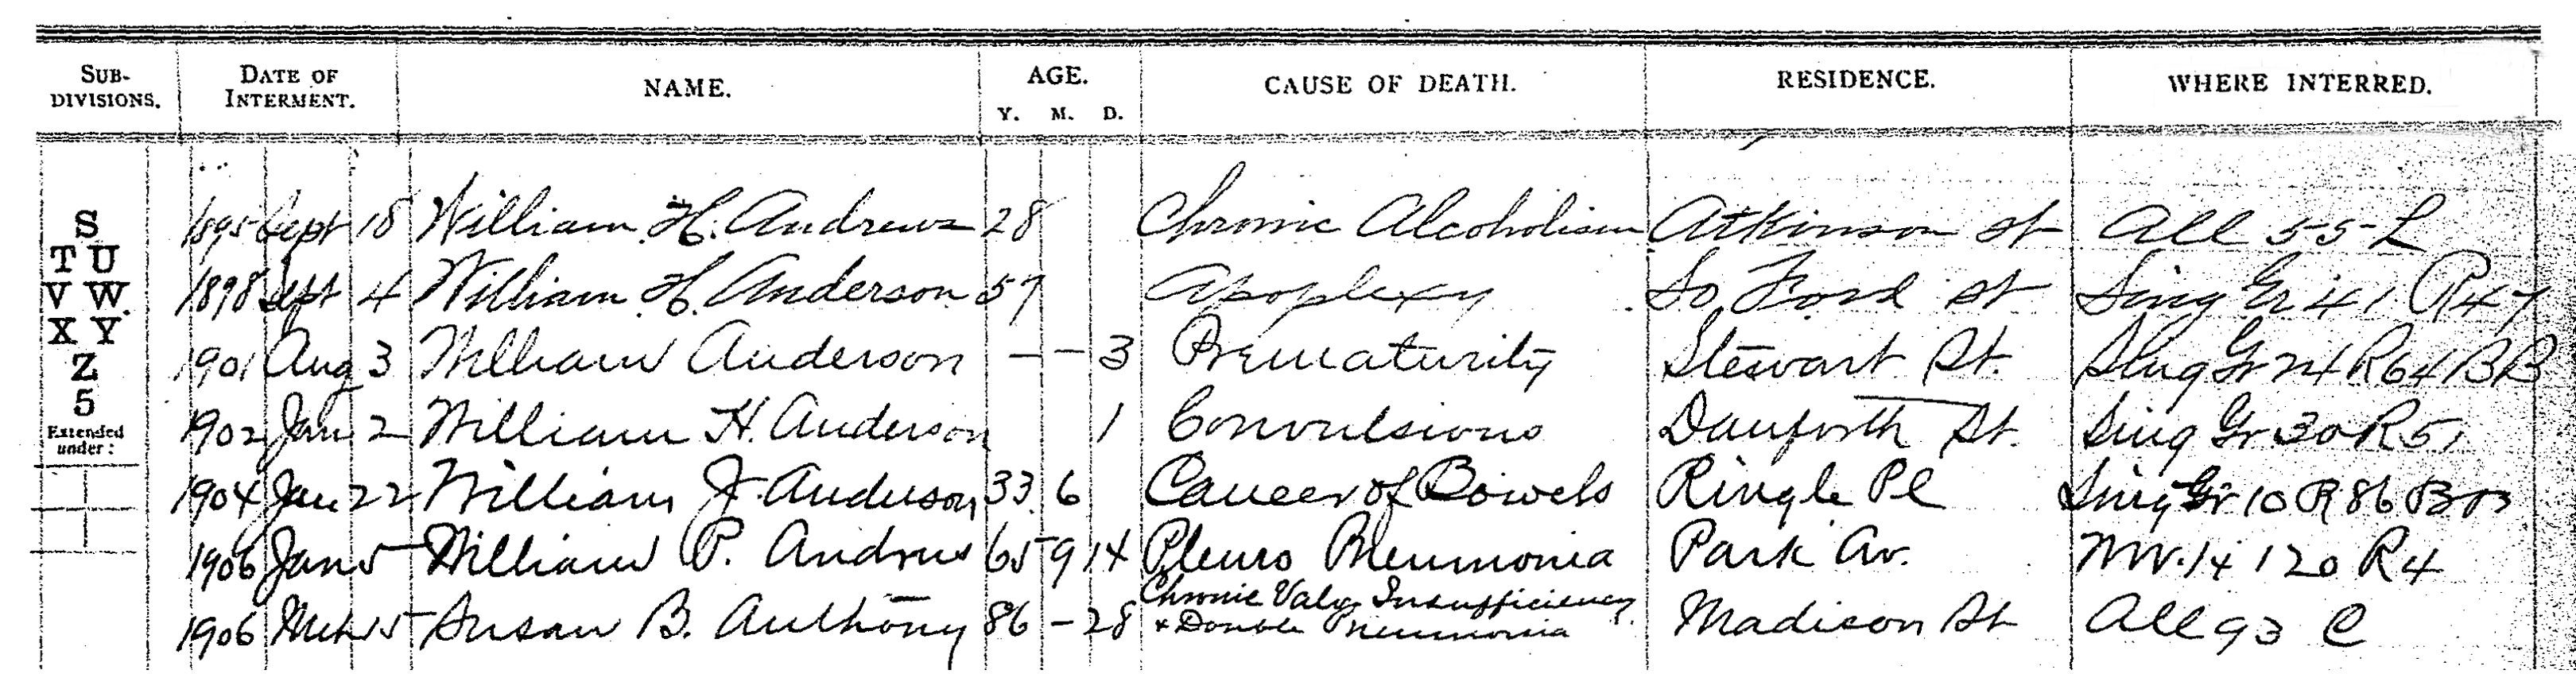 SUB-DIVISIONS. DATE OF INTERMENT. NAME. AGE. Y. M. D. CAUSE OF DEATH. RESIDENCE. WHERE INTERRED.
S
T U
V W.
X Y
Z
5
Extended under:
1895 Sept 18 William H. Andrews 28 Chronic Alcoholism Atkinson St All 55 L
1898 Sept 4 William H. Anderson 57 Apoplexy So. Ford St Sing Gr 41 R 47
1901 Aug 3 William Anderson – – 3 Prematurity Stewart St. Sing Gr 24 R 64 BB
1902 Jan 2 William H. Anderson 1 Convulsions Danforth St. Sing Gr 30 R 51
1904 Jan 22 William J. Anderson 33 6 Cancer of Bowels Ringle Pl Sing Gr 10 R 86
1906 Jan 5 William P. Andrus 65 9 14 Pleuro Pneumonia Park Av. 14 120 R 4
1906 Mch 15 Susan B. Anthony 86 – 28 Chronic Valv. Insufficiency + Double Pneumonia Madison St All 93 C